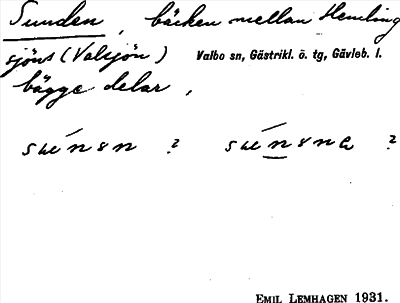 Sunden, bäcken mellan Hemling
sjöns (Valsjön) Valbo sn, Gästrikl. ö. tg, Gävleb. l.
bägge delar,
? ?
EMIL LEMHAGEN 1931.